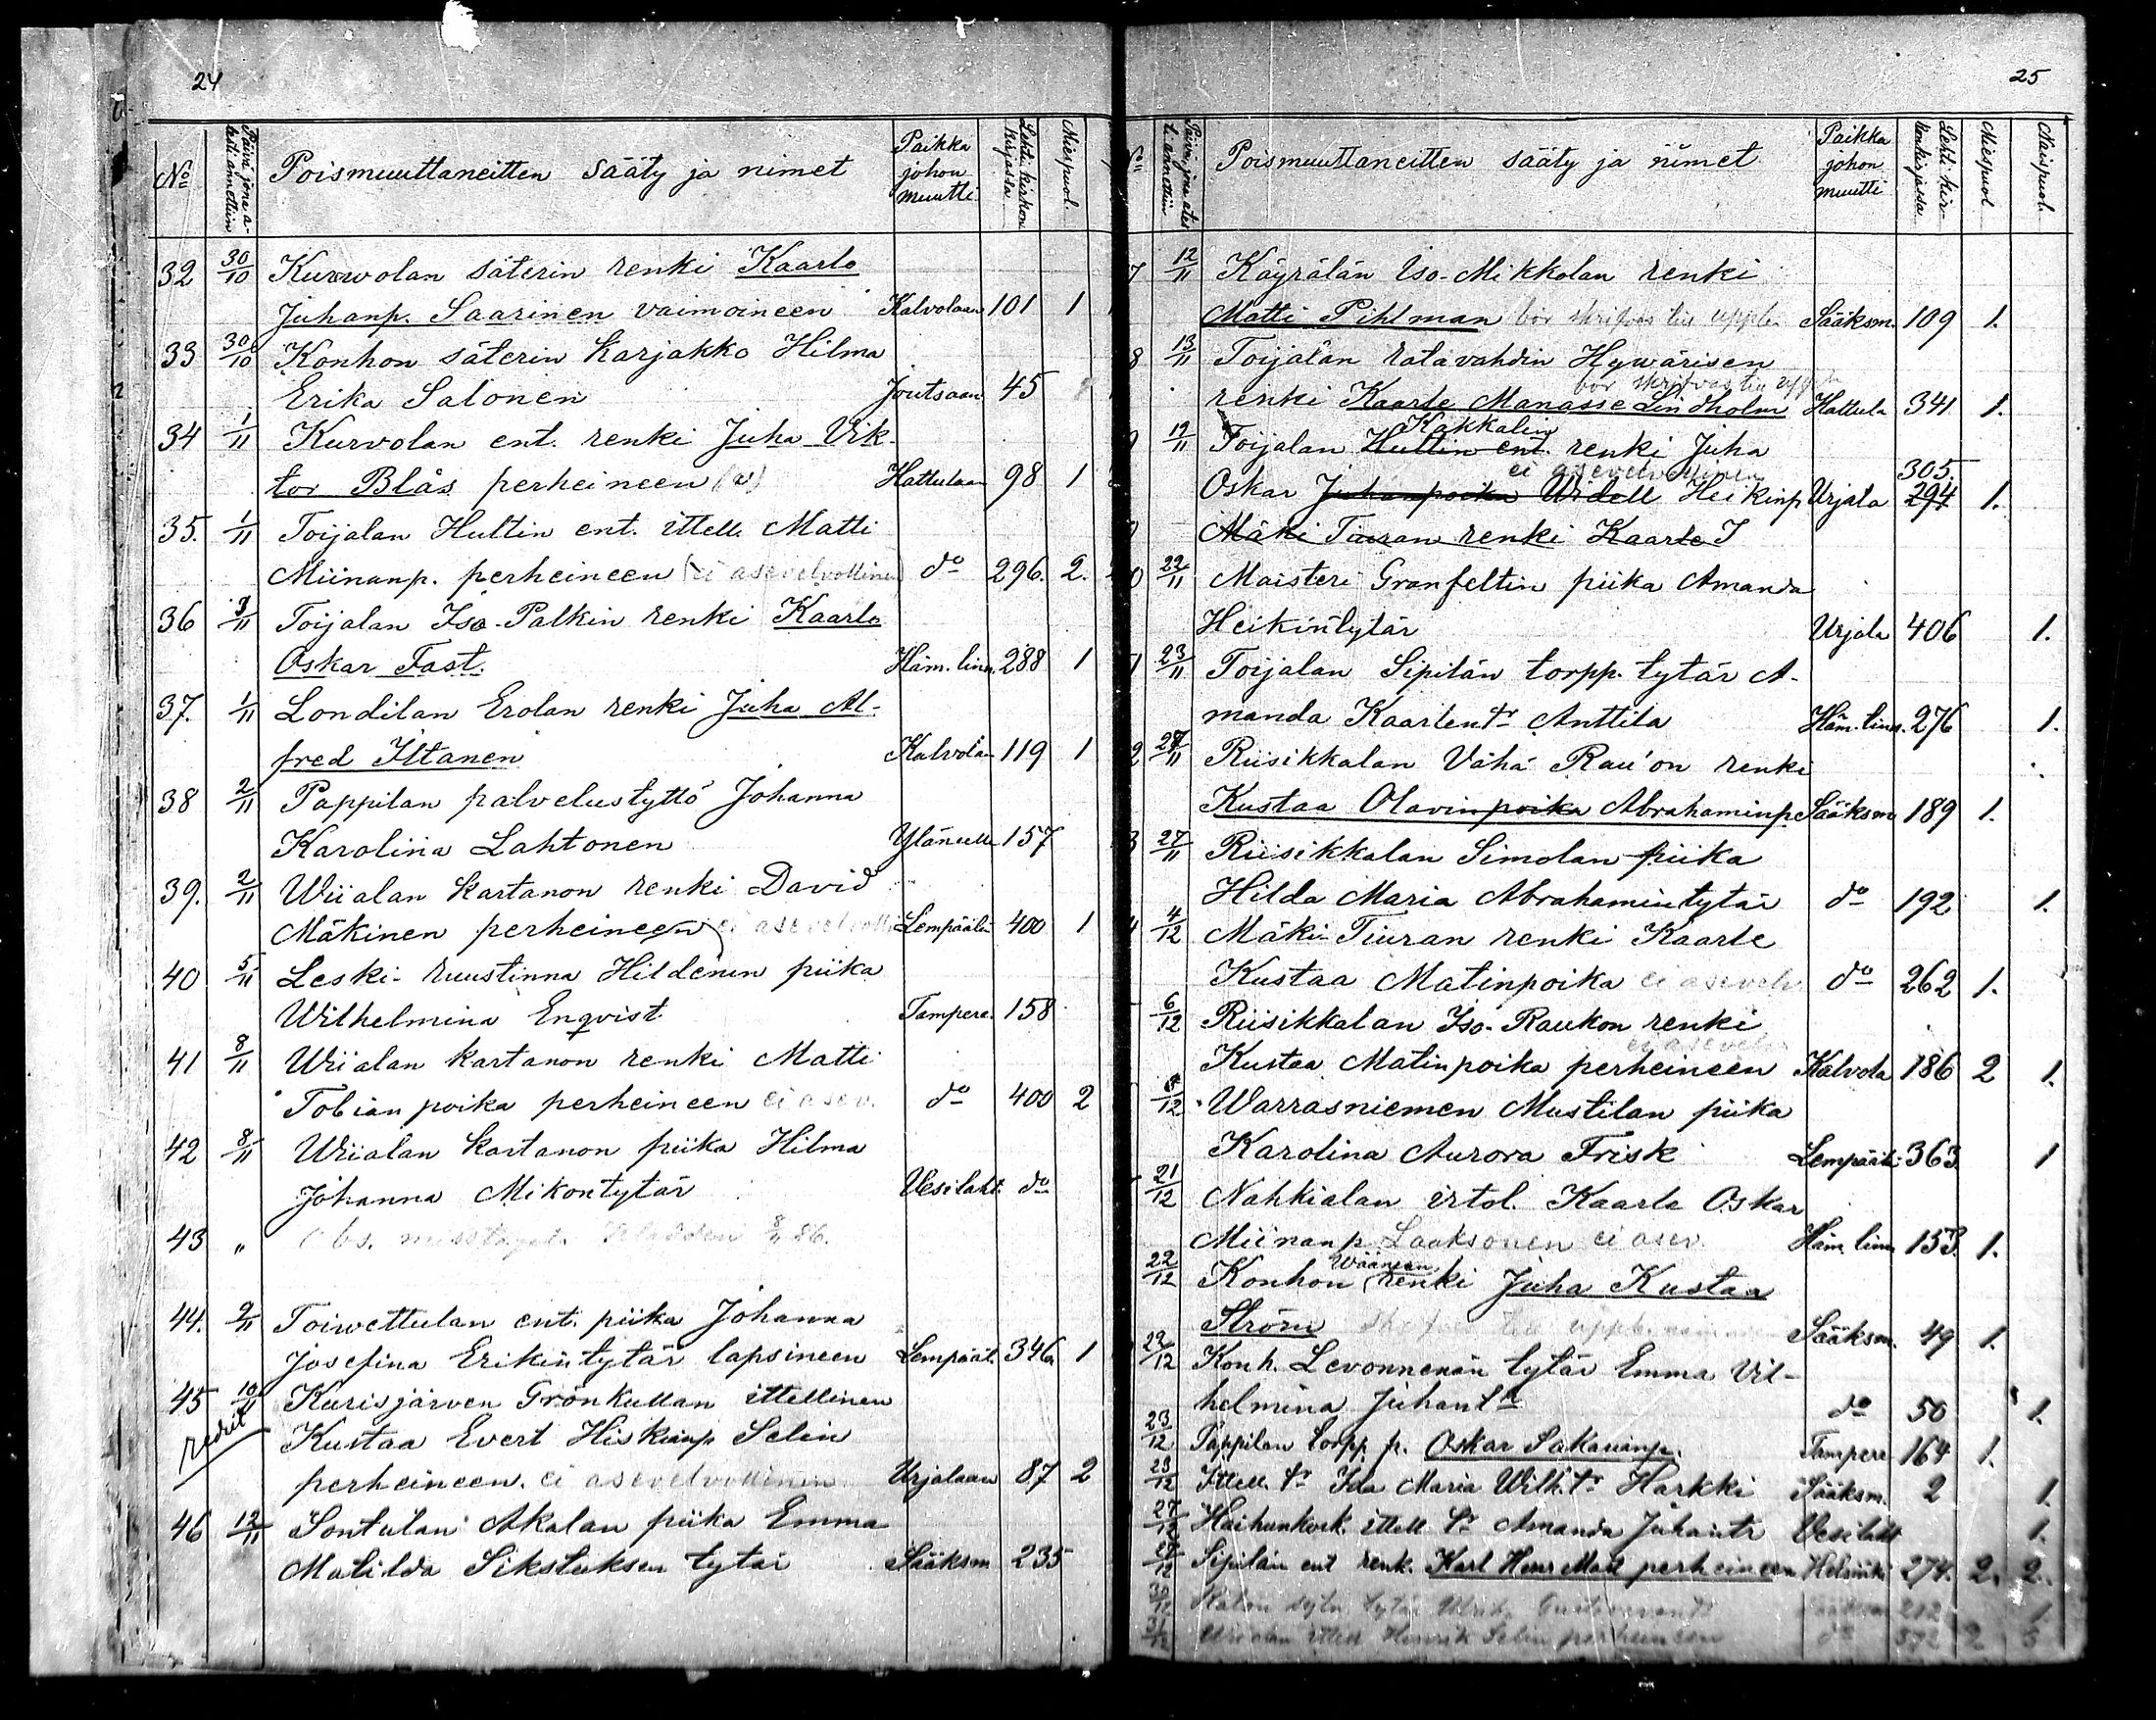 24
No
Päivä jona a-
testi annettiin
Poismuuttaneitten sääty ja nimet
Paikka
johon
muutti.
Lehti kirkon
kirjassa
Miespuol.
32 30/10 Kurwolan säterin renki Kaarlo
Juhanp. Saarinen vaimoineen Kalvolaan 101 1
33 30/10 Konhon säterin karjakko Hilma
Erika Salonen Joutsaan 45
34 1/11 Kurvolan ent. renki Juha Vik-
tor Blås perheineen Hattulaan 98 1
35. 1/11 Toijalan Hultin ent. ittell. Matti
Miinanp. perheineen (ei asevelvollinen) do 296. 2.
36 3/11 Toijalan Iso-Palkin renki Kaarlo
Oskar Fast. Häm.linn. 288 1
37. 1/11 Londilan Erolan renki Juha Al-
fred Iltanen Kalvola 119 1
38 2/11 Pappilan palvelustyttö Johanna
Karolina Lahtonen Yläneelle 157
39. 2/11 Wiialan kartanon renki David
Mäkinen perheineen ei asevelvolli Lempäälä 400 1
40 5/11 Leski-ruustinna Hildenin piika
Wilhelmina Enqvist Tampere. 158
41 8/11 Wiialan kartanon renki Matti
Tobianpoika perheineen ei asev. do 400 2
42 8/11 Wiialan kartanon piika Hilma
Johanna Mikontytär Vesilaht. do
43 " Obs. misstagets 8/11 86.
44. 9/11 Toiwettulan ent. piika Johanna
Josefina Erikintytär lapsineen Lempäät. 346 1
45 10/11 Kurisjärven Grönkullan ittellinen
Kustaa Evert Hiskianp Selin
perheineen. ei asevelvollinen Urjalaan 87 2
46 12/11 Sontulan Akalan piika Emma
Matilda Sikstuksen tytär Sääksm 235
25
No
Poismuuttaneitten sääty ja nimet
Paikka
johon
muutti
Lehti kir-
konkirjassa
Miespuol
Naispuol.
7 12/11 Käyrälän Iso-Mikkolan renki
Matti Pihlman bör skrifvas till uppb. Sääksm. 109 1.
8 13/11 Toijalan ratavahdin Hywärisen
bör skrifvas till uppb
renki Kaarle Manasse Lindholm Hattula 341 1.
Kakkalin
9 19/11 Toijalan Hultin ent. renki Juha
ei asevelvollinen 305.
Oskar Juhanpoika Widell Heikinp Urjala 294 1.
Mäki Tiuran renki Kaarle J
0 22/11 Maisteri Granfeltin piika Amanda
Heikintytär Urjala 406 1.
1 23/11 Toijalan Sipilän torpp. tytär A-
manda Kaarlentr Anttila Häm.linn. 276 1.
2 27/11 Riisikkalan Vähä Rau'on renki
Kustaa Olavinpoika Abrahaminp Sääksm 189 1.
3 27/11 Riisikkalan Simolan piika
Hilda Maria Abrahamintytär do 192 1.
4 4/12 Mäki-Tiuran renki Kaarle
Kustaa Matinpoika ei asevelv do 262 1.
6/12 Riisikkalan Iso-Raukon renki
ei asevelv
Kustaa Matinpoika perheineen Kalvola 186 2 1.
8/12 Warrasniemen Mustilan piika
Karolina Aurora Frisk Lempäälä 363 1
21/12 Nahkialan irtol. Kaarle Oskar
Miinanp Laaksonen ei asev. Häm linn 153. 1.
Wäänsen
22/12 Konhon renki Juha Kustaa
Ström Sääksm. 49 1.
22/12 Konh. Levonnenän tytär Emma Vil-
helmina Juhantr do 50 1.
23/12 Pappilan torpp p. Oskar Sakarinp. Tampere 164 1.
23/12 Ittell. tr Ida Maria Wilh.tr Harkki Sääksm. 2 1.
27/12 Haihunkosk. ittell tr Amanda Juhantr Vesilaht 1.
28/12 Sipilän ent renk. Karl Henr Matt perheineen Helsinki 274. 2. 2.
30/12 tytär Ulrika 212 1.
31/12 Wiialan ittell Henrik Selin perheineen do 372 2 3